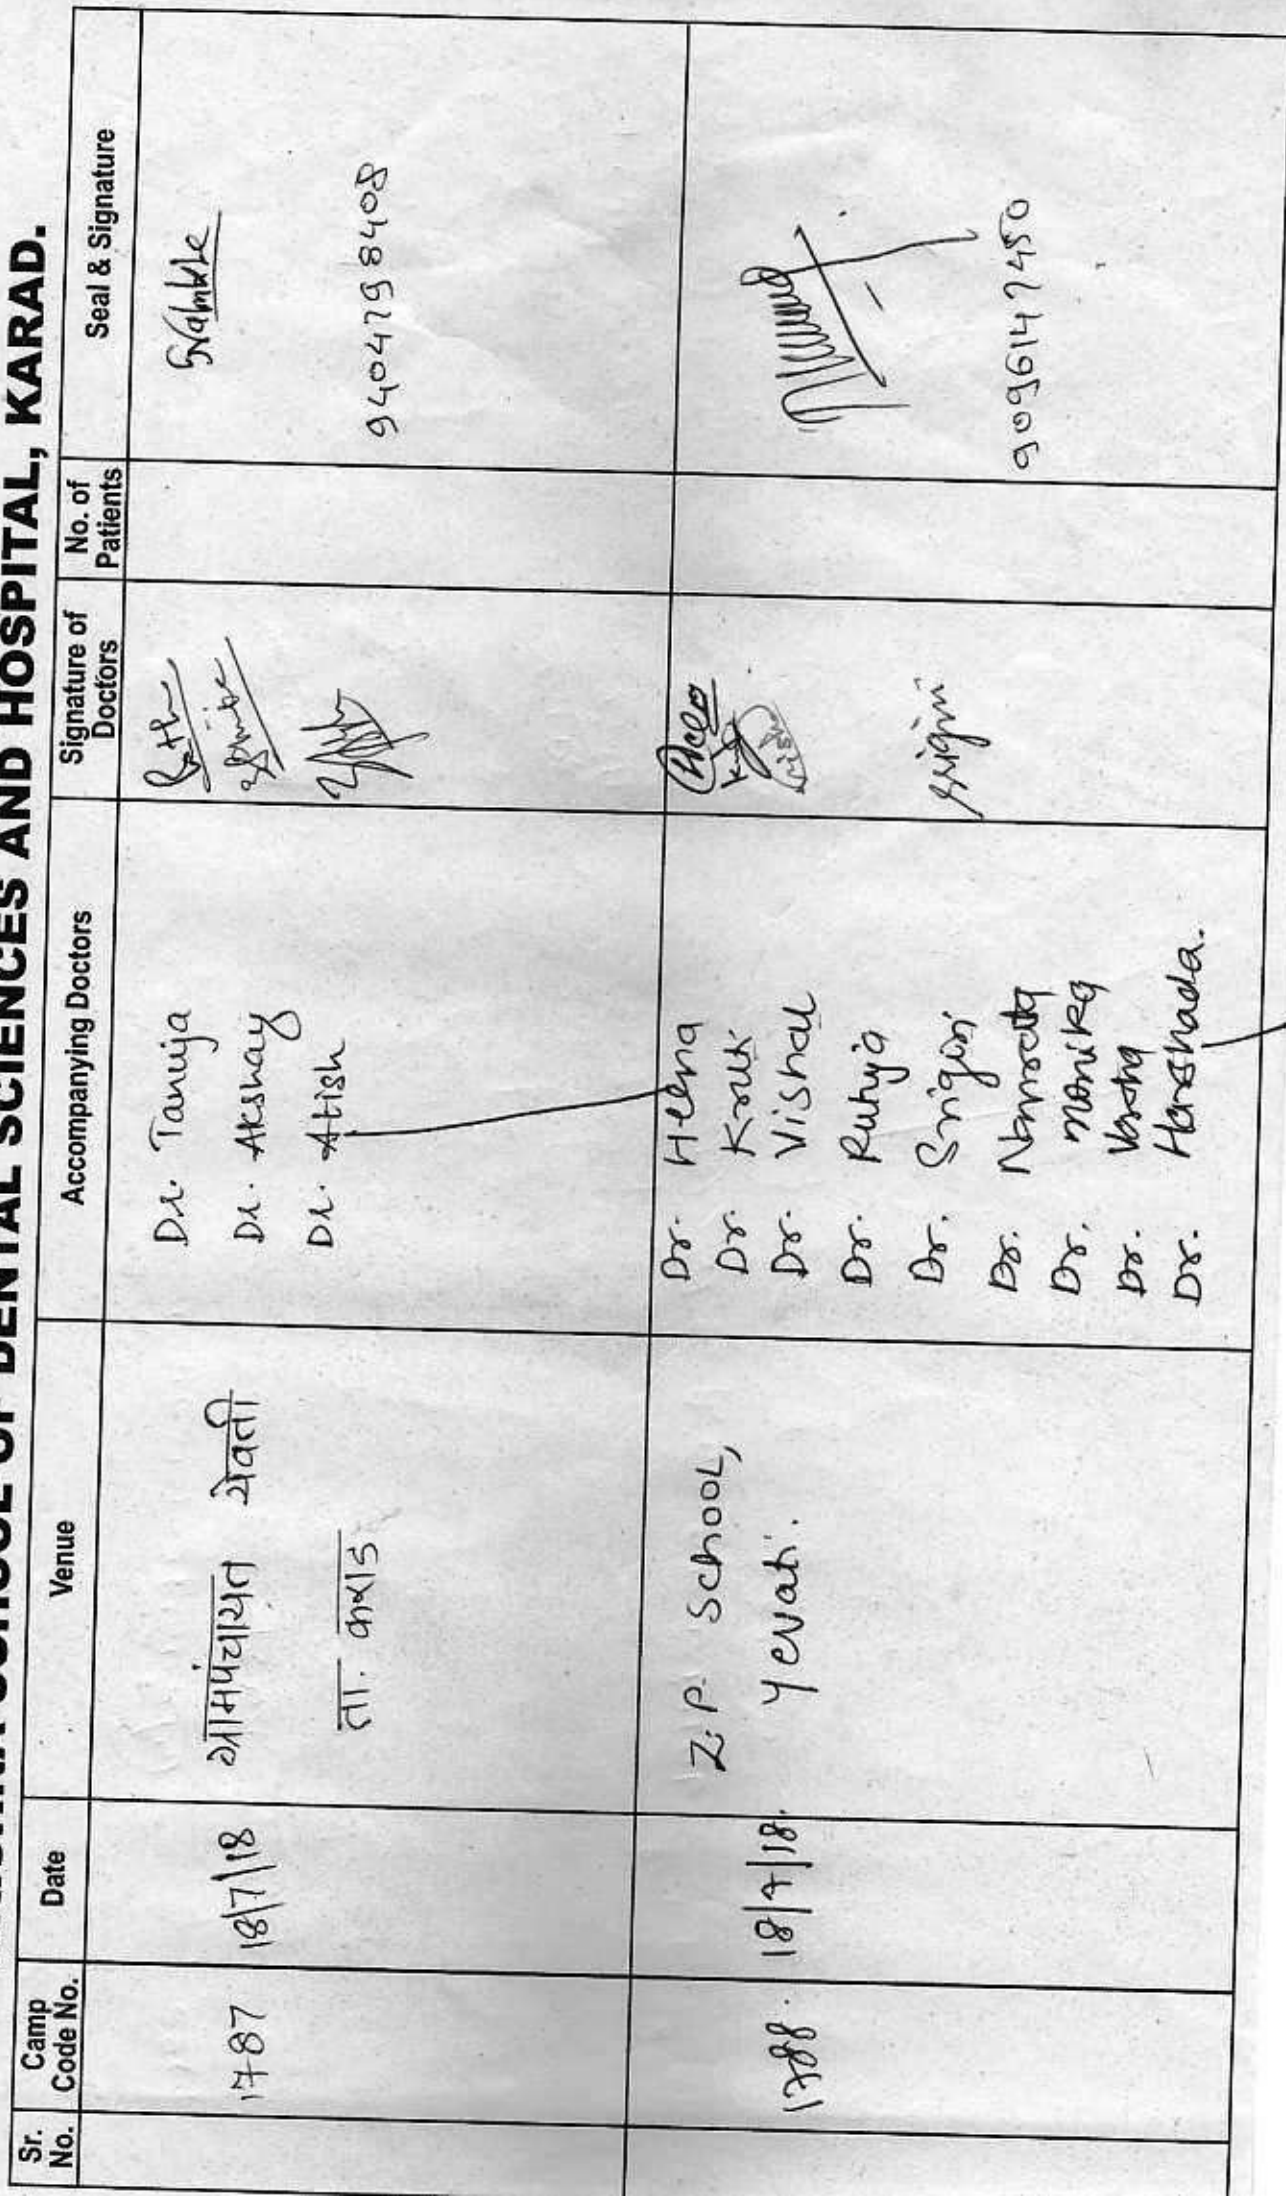 SCHOOL OF DENTAL SCIENCES AND HOSPITAL, KARAD.
Sr. No. Camp Code No. Date Venue Accompanying Doctors Signature of Doctors No. of Patients Seal & Signature
1787 18/7/18 ग्रामपंचायत येवती
ता. कराड
Dr. Tanuja
Dr. Akshay
Dr. Atish
9404798408
1788. 18/7/18. Z.P. School,
Yevati.
Dr. Heena
Dr. Kruti
Dr. Vishal
Dr. Rutuja
Dr. Srigiri
Dr. Namrata
Dr. Monika
Dr. Varsha
Dr. Harshada.
Srigiri
9096147450